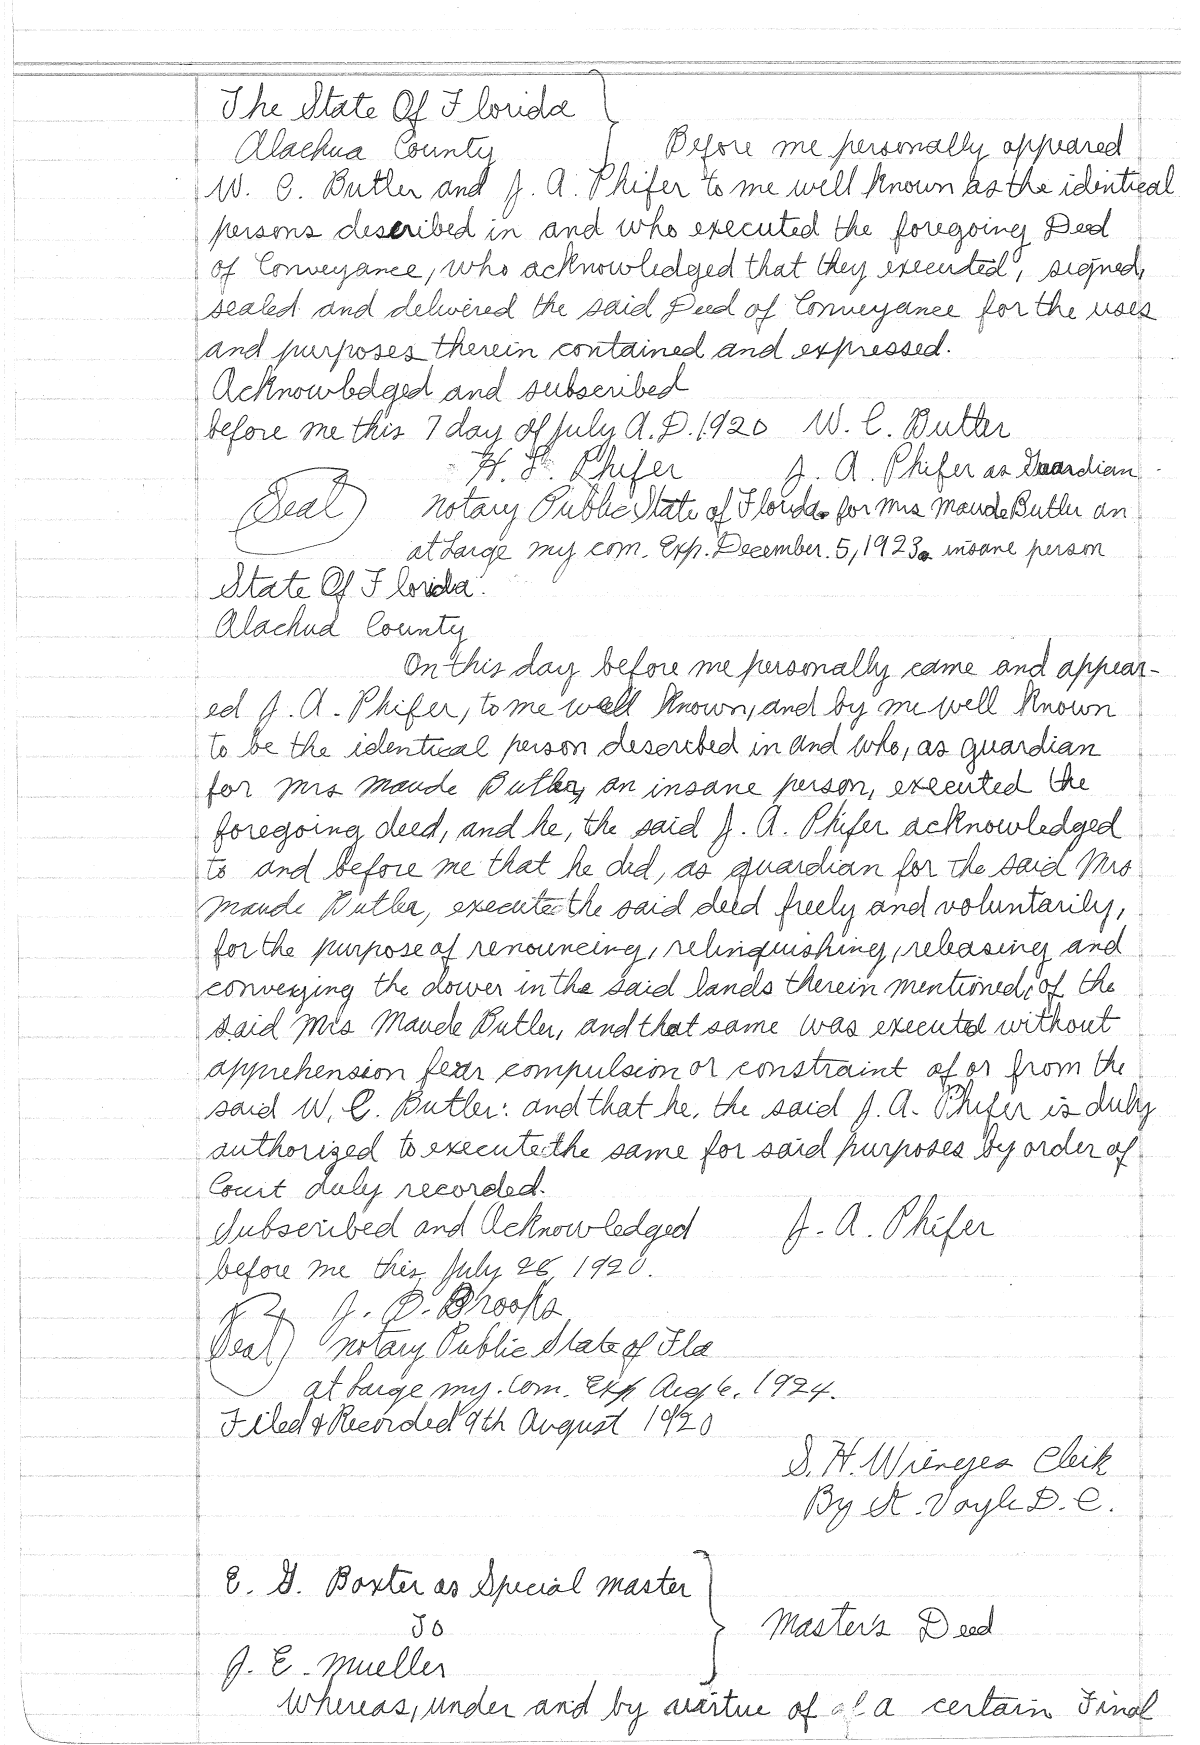 The State Of Florida
Alachua County    Before me personally appeared
W. C. Butler and J. A. Phifer to me well known as the identical
persons described in and who executed the foregoing Deed
of Conveyance, who acknowledged that they executed, signed,
sealed and delivered the said Deed of Conveyance for the uses
and purposes therein contained and expressed.
Acknowledged and subscribed
before me this 7 day of July A.D. 1920    W. C. Butler
H. L. Phifer    J. A. Phifer as Guardian
(Seal)    Notary Public State of Florida for Mrs Maude Butler an
at Large my com. Exp. December. 5, 1923. insane person
State Of Florida.
Alachua County
On this day before me personally came and appear-
ed J. A. Phifer, to me well known, and by me well known
to be the identical person described in and who, as guardian
for Mrs Maude Butler, an insane person, executed the
foregoing deed, and he, the said J. A. Phifer acknowledged
to and before me that he did, as guardian for the said Mrs
Maude Butler, execute the said deed freely and voluntarily,
for the purpose of renouncing, relinquishing, releasing and
conveying the dower in the said lands therein mentioned, of the
said Mrs Maude Butler, and that same was executed without
apprehension fear compulsion or constraint of or from the
said W. C. Butler: and that he, the said J. A. Phifer is duly
authorized to execute the same for said purposes by order of
Court duly recorded.
Subscribed and Acknowledged    J. A. Phifer
before me this, July 28, 1920.
J. D. Brooks
(Seal)    Notary Public State of Fla
at Large my. Com. Exp Aug 6, 1924.
Filed & Recorded 9th August 1920
S. H. Wienges Clerk
By A. Voyle D. C.
E. G. Baxter as Special Master
To    Master's Deed
J. E. Mueller
Whereas, under and by virtue of a certain Final